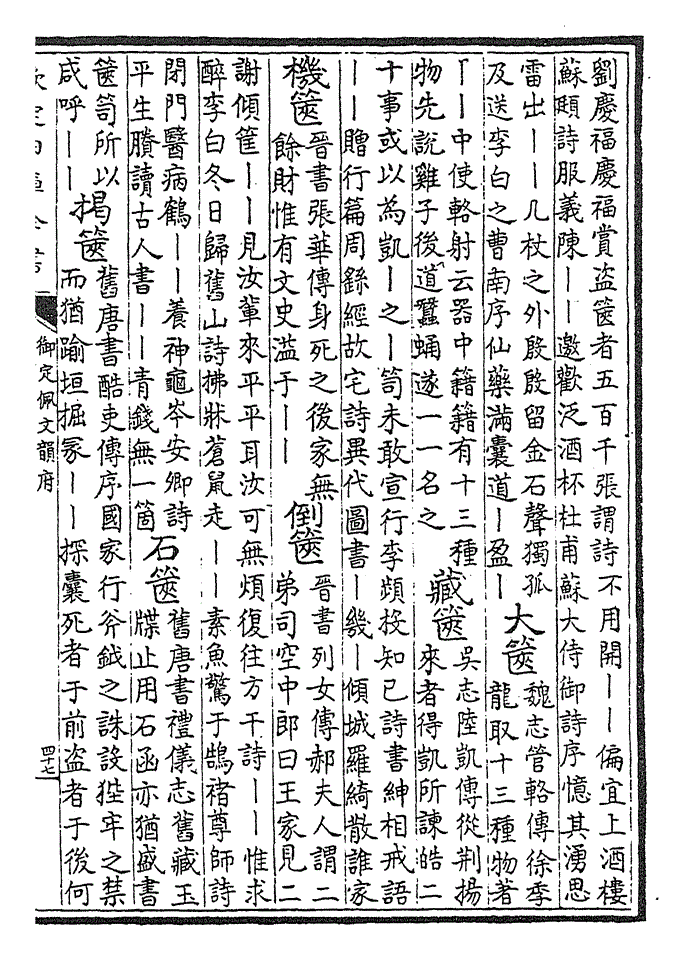 劉慶福慶福賞盜篋者五百千張謂詩不用開丨丨偏宜上酒樓
蘇頲詩服義陳丨丨邀歡泛酒杯杜甫蘇大侍御詩序憶其湧思
雷出丨丨几杖之外殷殷留金石聲獨孤
及送李白之曹南序仙藥滿囊道丨盈丨
大篋
魏志管輅傳徐季
龍取十三種物著
丨丨中使輅射云器中籍籍有十三種
物先說雞子後道蠶蛹遂一一名之
藏篋
吳志陸凱傳從荆揚
來者得凱所諫皓二
十事或以為凱丨之丨笥未敢宣行李頻投知己詩書紳相戒語
丨丨贈行篇周繇經故宅詩異代圖書丨幾丨傾城羅綺散誰家
機篋
晉書張華傳身死之後家無
餘財惟有文史溢于丨丨
倒篋
晉書列女傳郝夫人謂二
弟司空中郎曰王家見二
謝傾筐丨丨見汝輩來平平耳汝可無煩復往方干詩丨丨惟求
醉李白冬日歸舊山詩拂牀蒼鼠走丨丨素魚驚于鵠褚尊師詩
閉門醫病鶴丨丨養神龜岑安卿詩
平生賸讀古人書丨丨青錢無一箇
石篋
舊唐書禮儀志舊藏玉
牒止用石函亦猶盛書
篋笥所以
咸呼丨丨
揭篋
舊唐書酷吏傳序國家行斧鉞之誅設狴牢之禁
而猶踰垣掘冢丨丨探囊死者于前盜者于後何
欽定四庫全書
御定佩文韻府
四十七